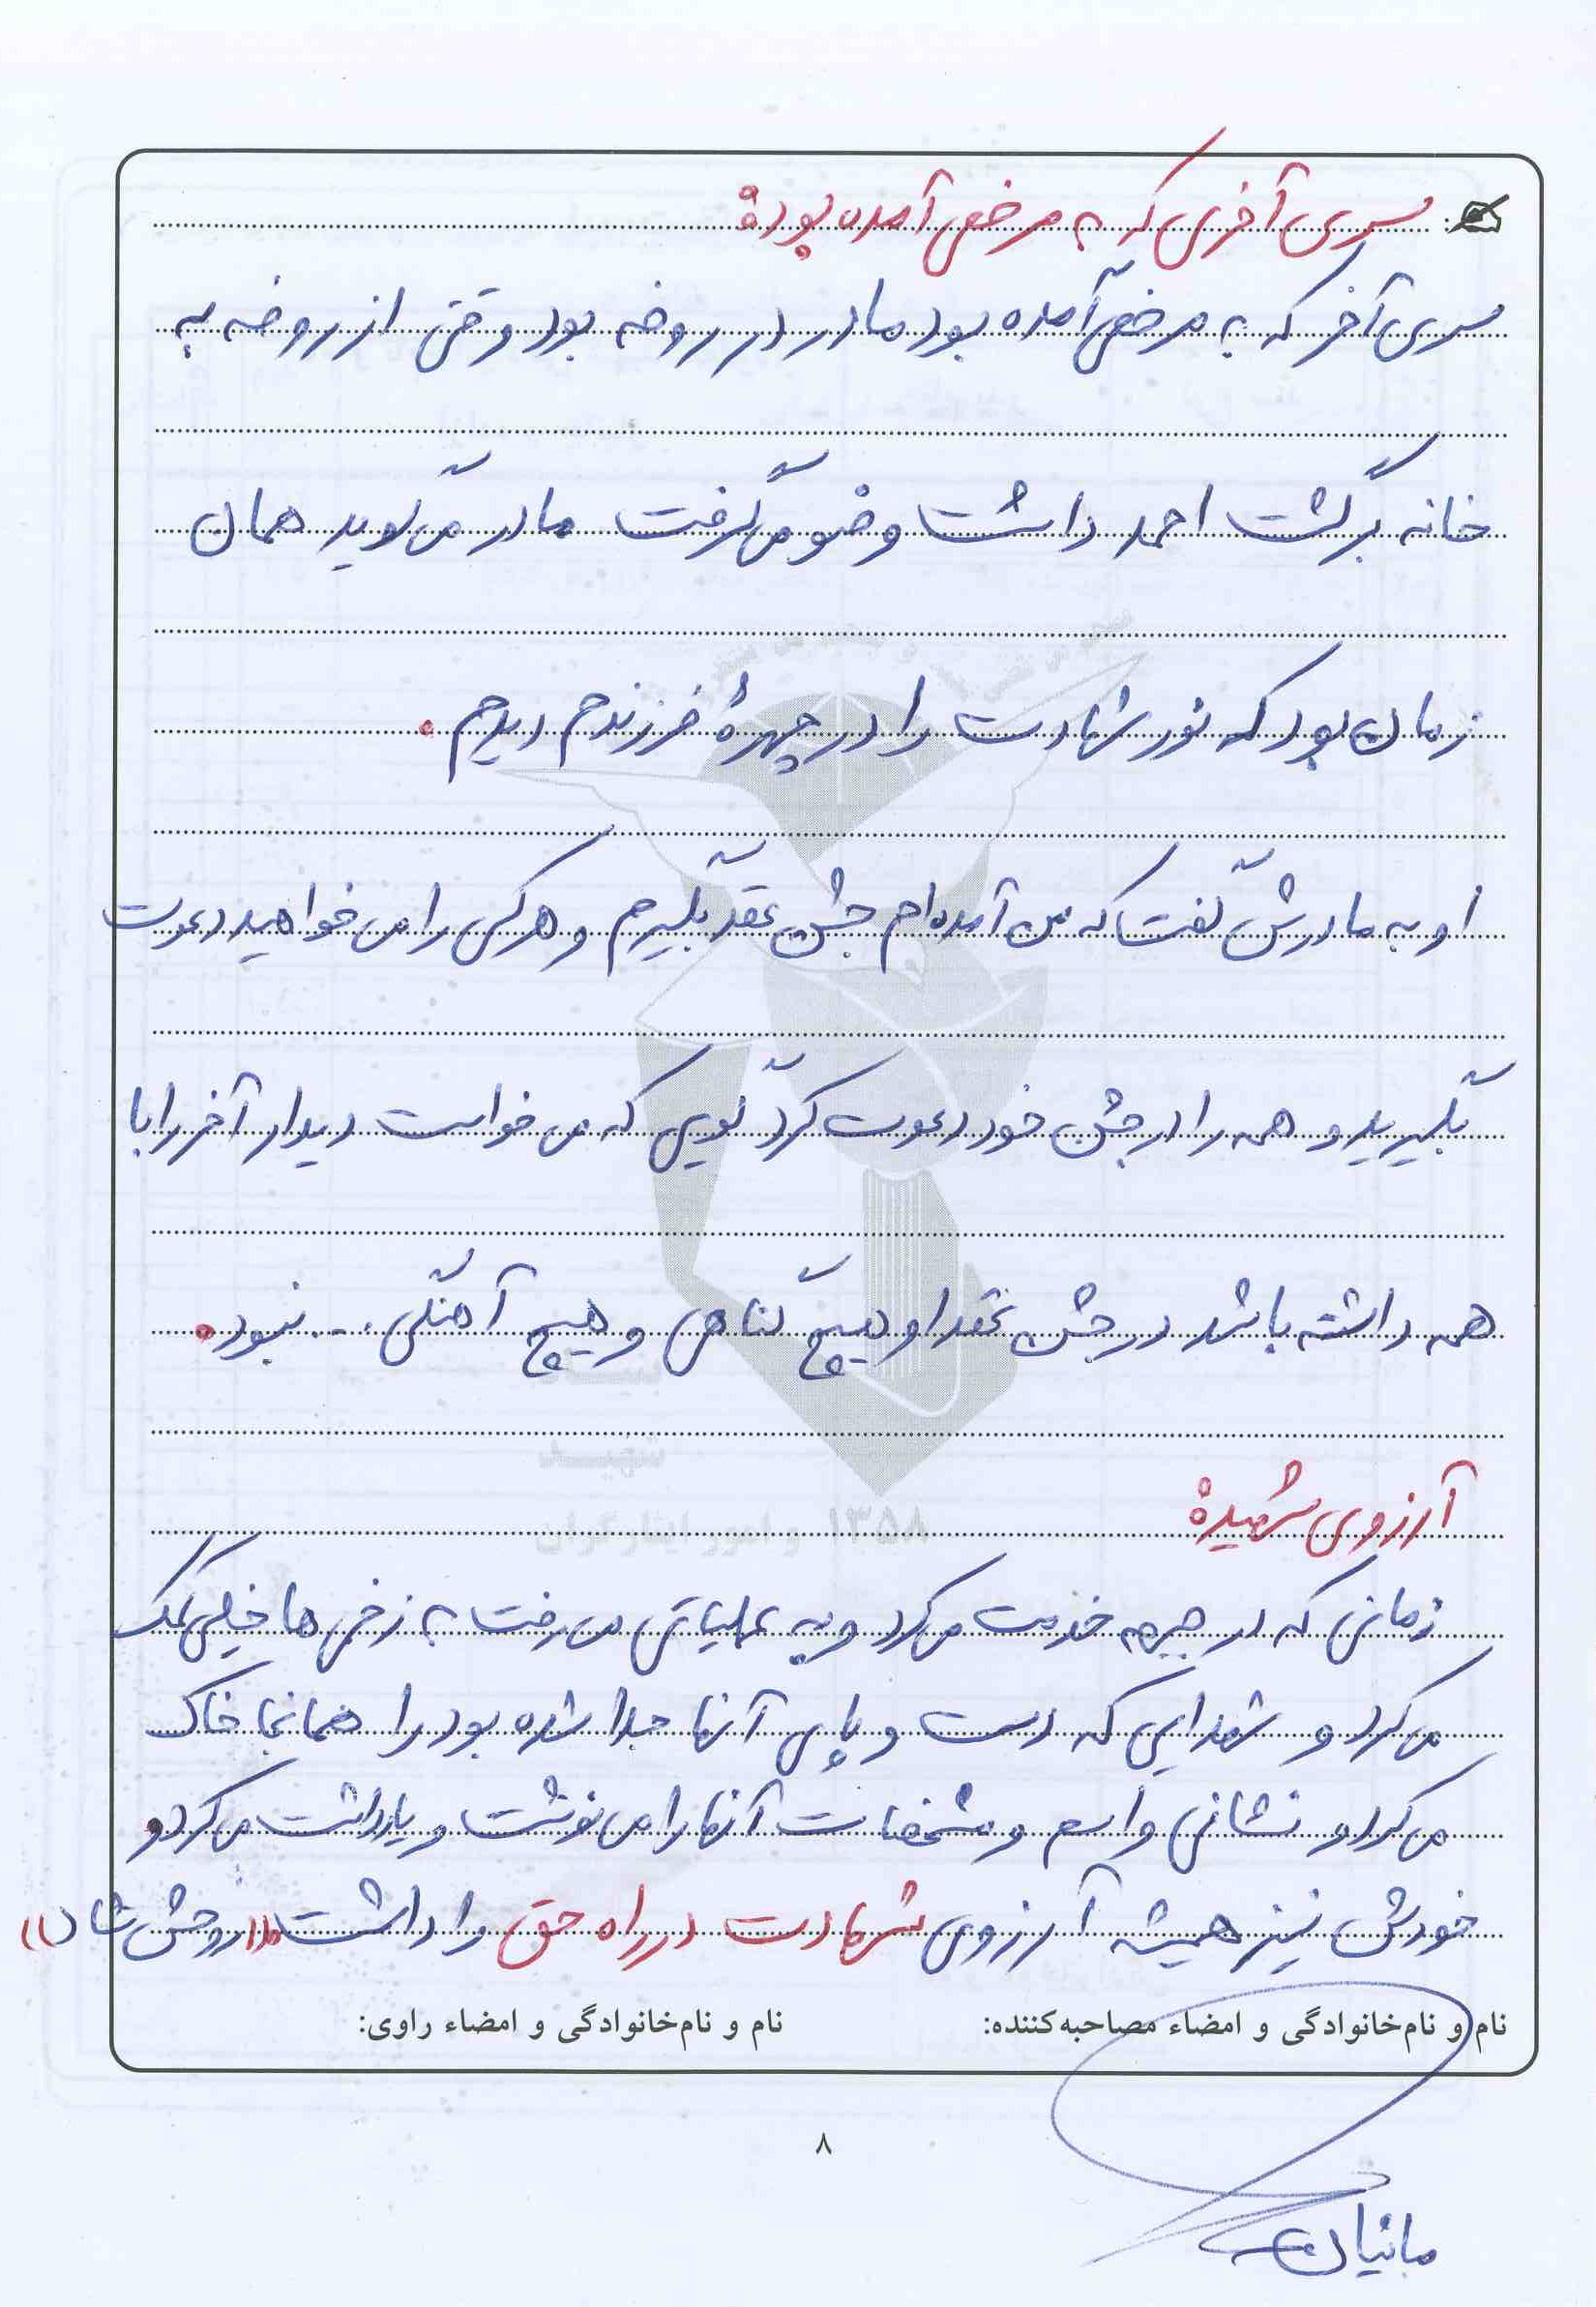 سری آخری که به مرخصی آمده بود:
سری آخر که به مرخصی آمده بود مادر در روضه بود وقتی از روضه به
خانه برگشت احمد داشت وضو می‌گرفت مادر می‌گوید همان
زمان بود که نور شهادت را در چهرهٔ فرزندم دیدم.
او به مادرش گفت که من آمده‌ام جشن عقد بگیرم و هر کسی را می‌خواهید دعوت
بگیرید و همه را در جشن خود دعوت کرد گویی که می‌خواست دیدار آخر را با
همه داشته باشد در جشن عقد او هیچ گناهی و هیچ آهنگی ... نبود.
آرزوی شهید:
زمانی که در جبهه خدمت می‌کرد و به عملیاتی می‌رفت به زخمی‌ها خیلی کمک
می‌کرد و شهدایی که دست و پای آنها جدا شده بود را همانجا خاک
می‌کرد و نشانی و اسم و مشخصات آنها را می‌نوشت و یادداشت می‌کرد و
خودش نیز همیشه آرزوی شهادت در راه حق را داشت ((روحش شاد))
نام و نام‌خانوادگی و امضاء مصاحبه‌کننده: نام و نام‌خانوادگی و امضاء راوی:
۸
مانیان